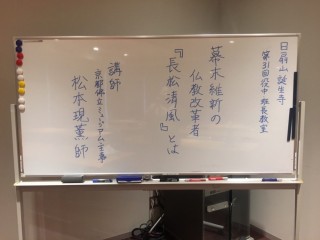 日扇山 誕生寺
第31回役中 班長教室
幕末維新の
仏教改革者
『長松清風』とは
講師
京都佛立ミュージアム主事
松本現薫師